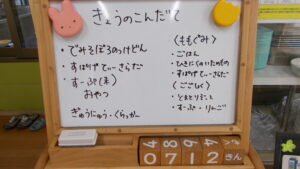 きょうのこんだて
・でみそぼろのっけどん
・すぱげてぃーさらだ
・すーぷ(木)
おやつ
ぎゅうにゅう・くらっかー
〈ももぐみ〉
・ごはん
・ひきにくのいためもの
・すぱげてぃーさらだ
〈ごごしょく〉
・とまとりぞっと
・すーぷ・りんご
0712
きん